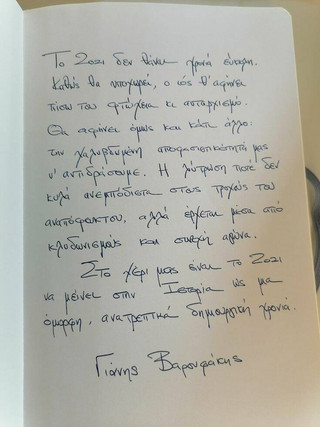 Το 2021 δεν θάναι χρονιά εύκολη.
Καθώς θα υποχωρεί, ο ιός θ' αφήνει
πίσω του φτώχεια κι αυταρχισμό.
Θα αφήνει όμως και κάτι άλλο:
την χαλυβδωμένη αποφασιστικότητά μας
ν' αντιδράσουμε. Η λύτρωση ποτέ δεν
κυλά ανεμπόδιστα στους τροχούς του
αναπόφευκτου, αλλά έρχεται μέσα από
κλυδωνισμούς και συνεχή αγώνα.
Στο χέρι μας είναι το 2021
να μείνει στην Ιστορία ως μια
όμορφη, ανατρεπτικά δημιουργική χρονιά.
Γιάνης Βαρουφάκης